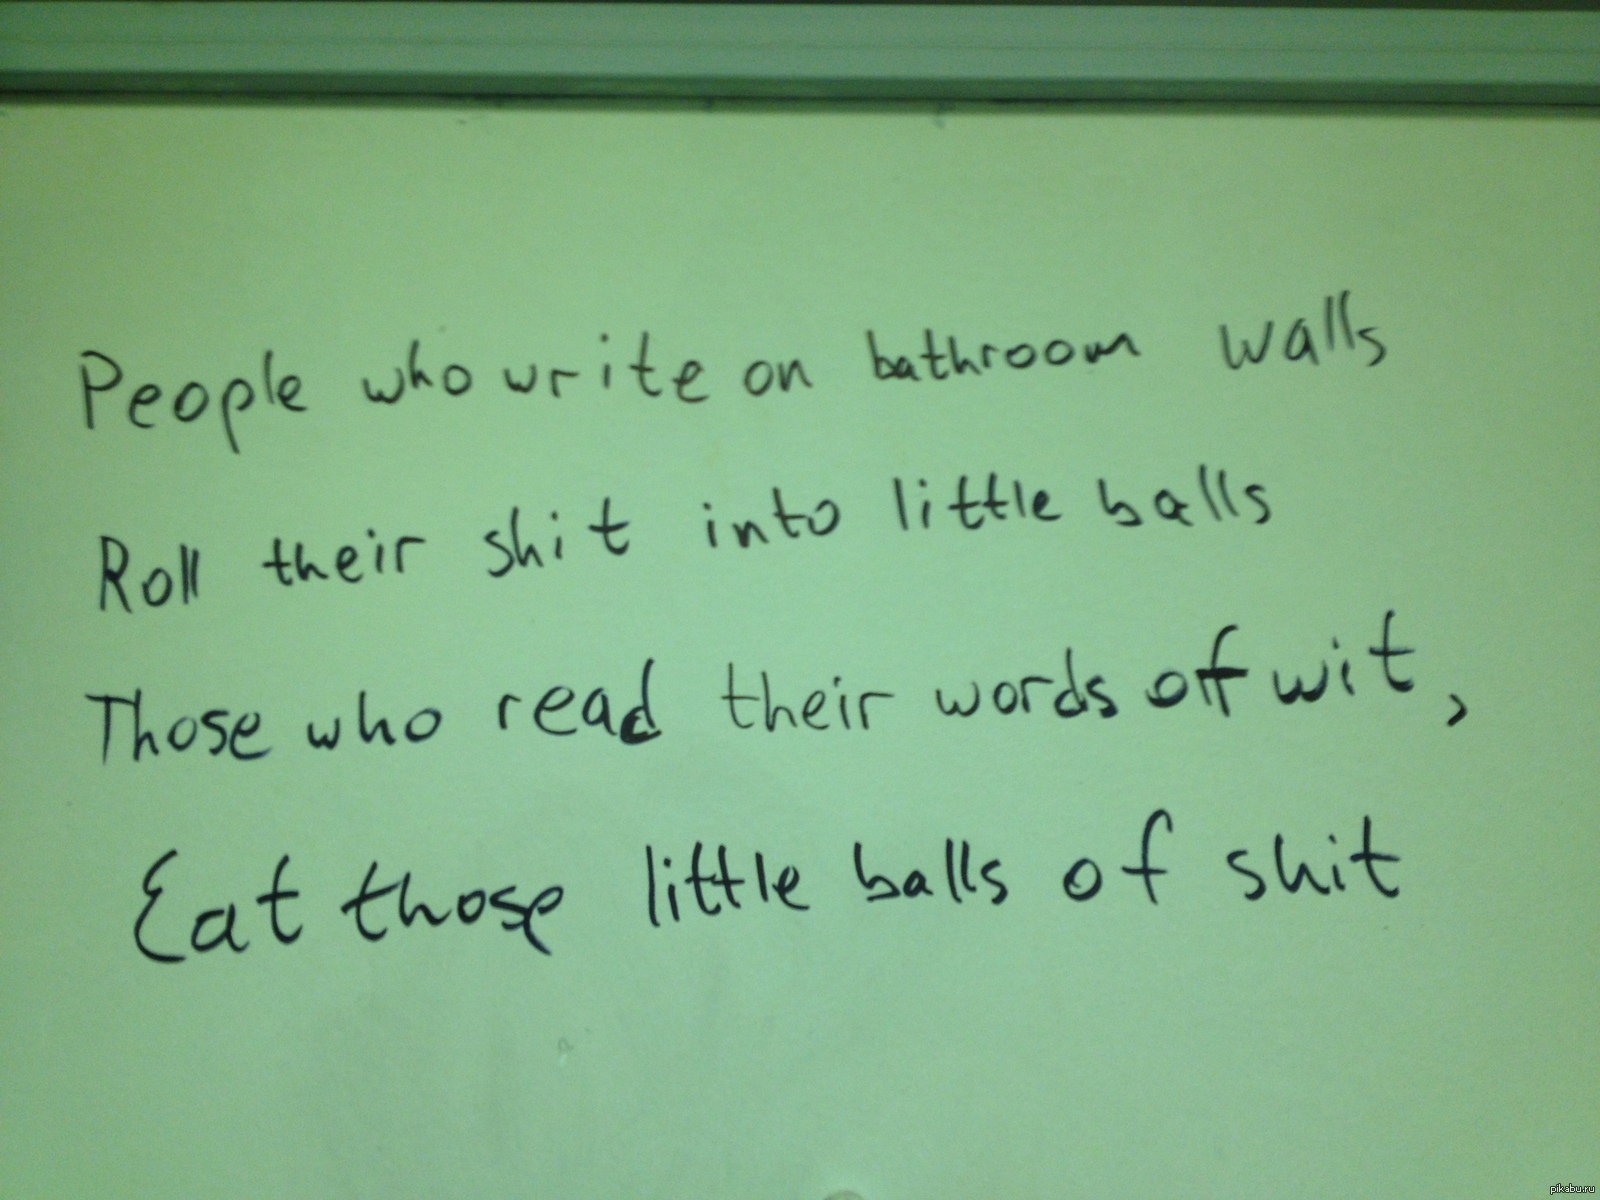 People who write on bathroom walls
Roll their shit into little balls
Those who read their words of wit,
Eat those little balls of shit
pikabu.ru